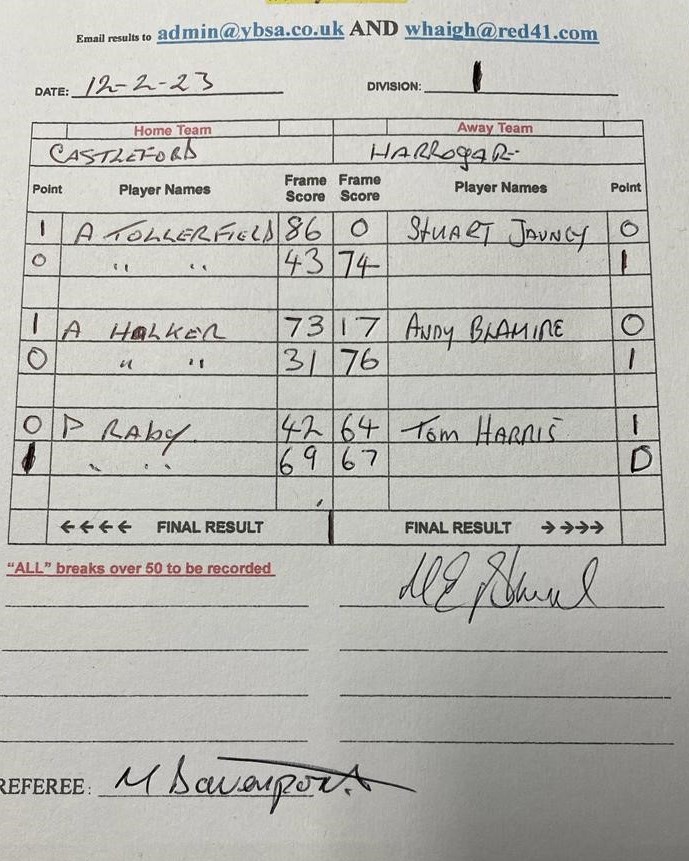 Email results to admin@ybsa.co.uk AND whaigh@red41.com
DATE: 12-2-23 DIVISION: 1
Home Team Away Team
CASTLEFORD HARROGAR
Point Player Names Frame Score Frame Score Player Names Point
1 A TOLLERFIELD 86 0 STUART JAUNCY 0
0 " " 43 74 1
1 A HALKER 73 17 ANDY BLAMIRE 0
0 " " 31 76 1
0 P RABY 42 64 TOM HARRIS 1
1 " " 69 67 0
←←←← FINAL RESULT FINAL RESULT →→→→
"ALL" breaks over 50 to be recorded
REFEREE: M Davenport